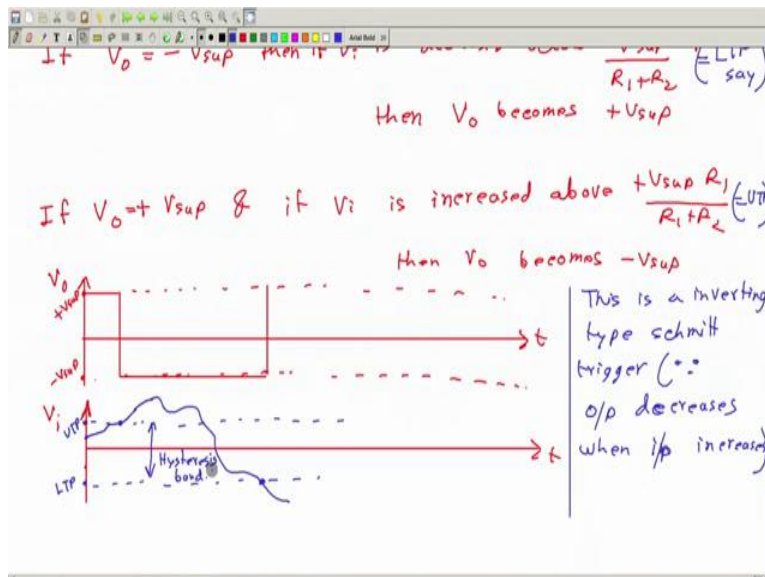 Arial Bold
If Vo = - Vsup then if Vi is
R1+R2 say)
then Vo becomes +Vsup
If Vo=+ Vsup & if Vi is increased above +Vsup R1
R1+R2 (=UTP)
then Vo becomes -Vsup
Vo
+Vsup
t
-Vsup
Vi
UTP
Hysteresis
band.
t
LTP
This is a inverting
type schmitt
trigger (∵
o/p decreases
when i/p increases)